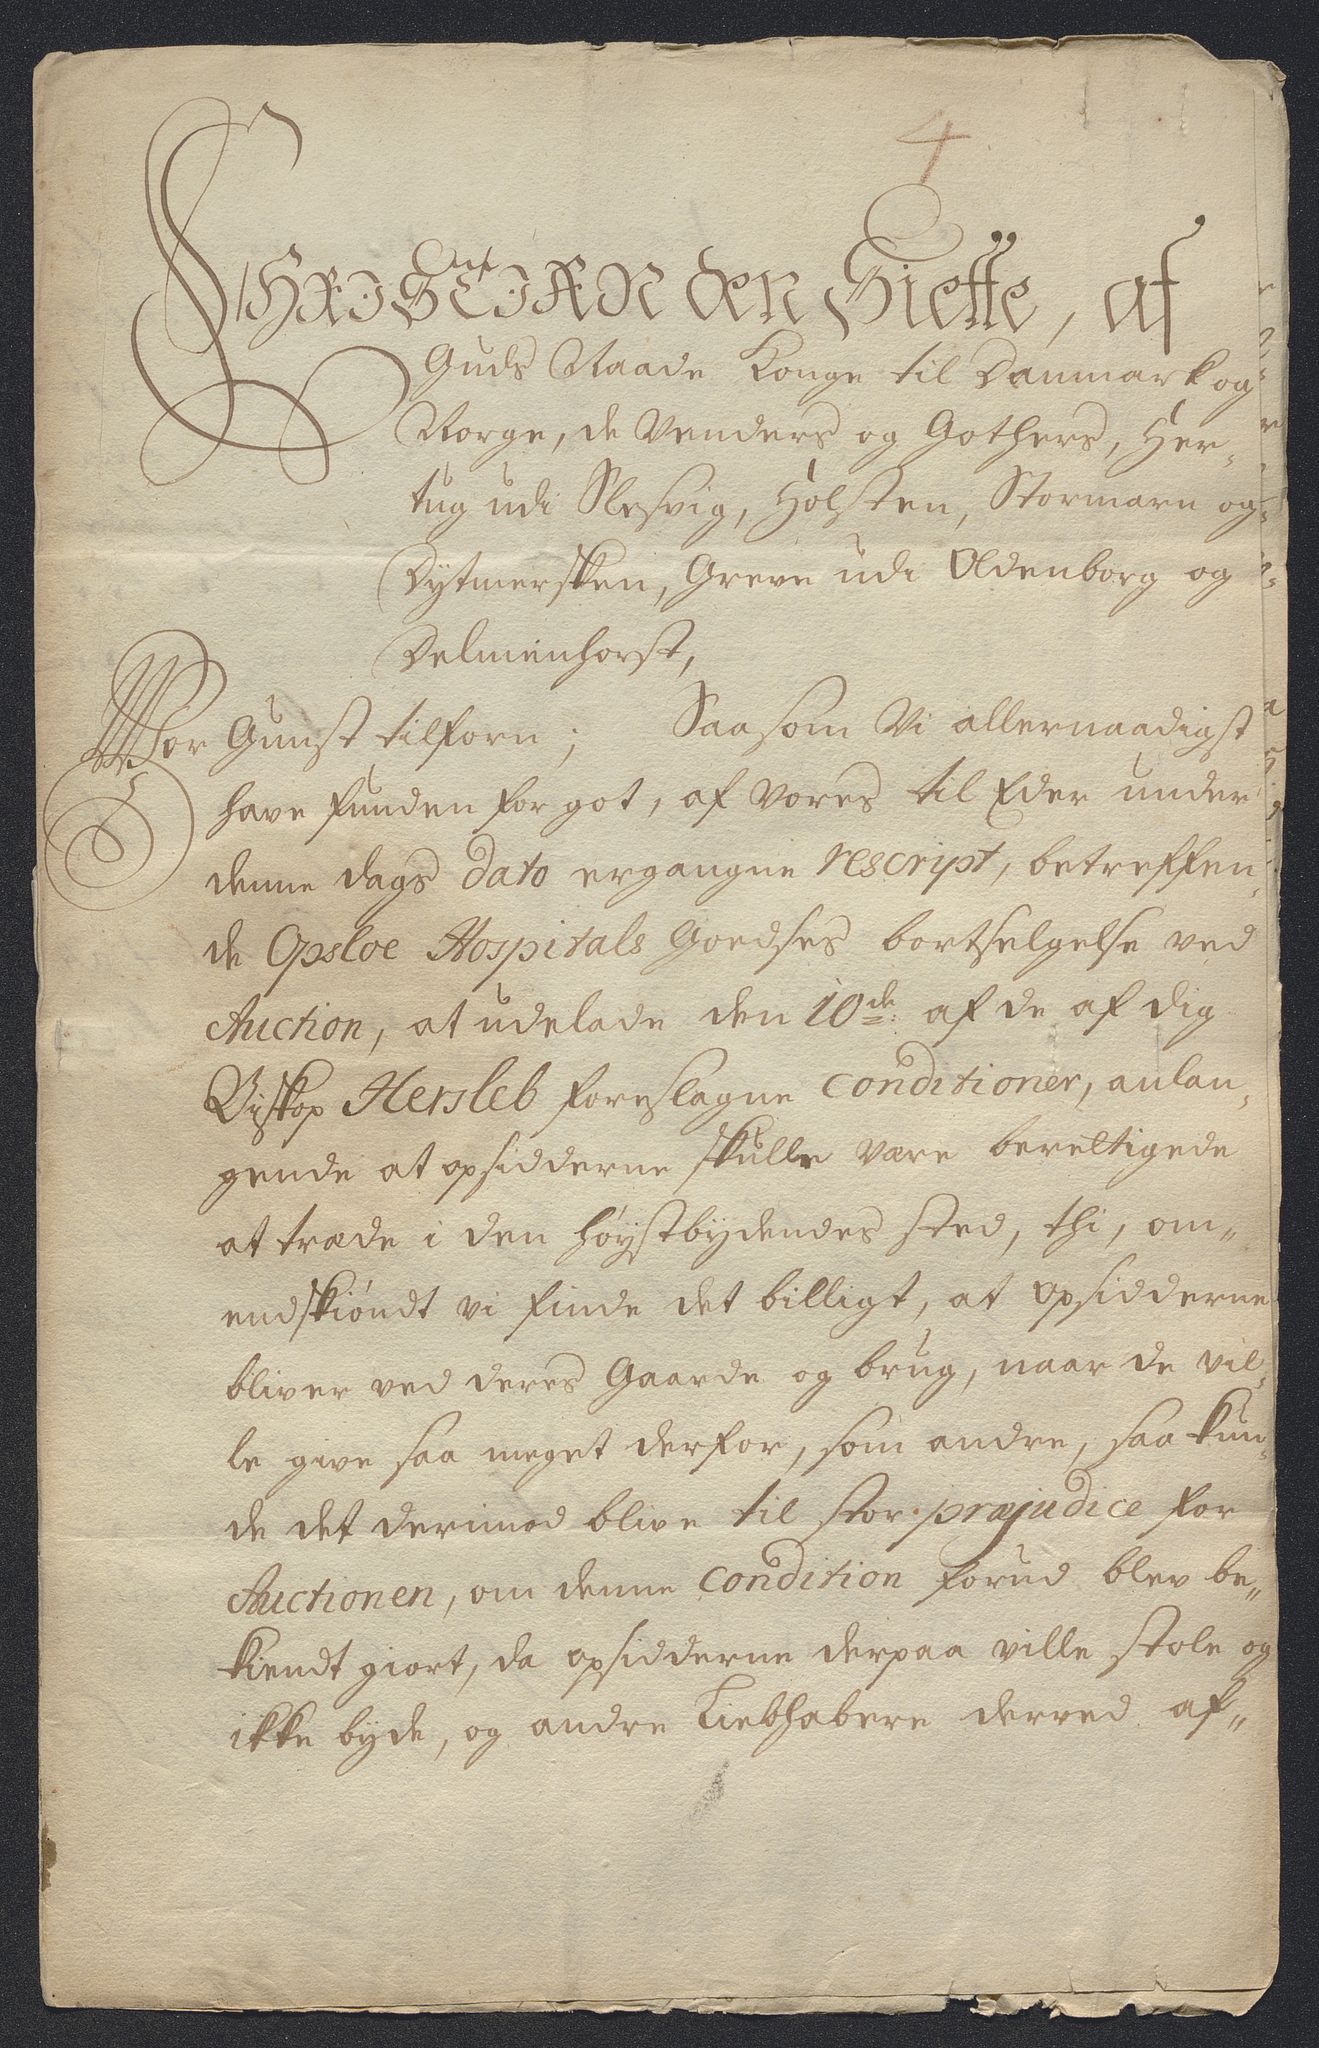 4
CHRISTIAN den Siette, af
Guds Naade Konge til Danmark og
Norge, de Venders og Gothers, Her-
tug udi Slesvig, Holsten, Stormarn og
Dytmersken, Greve udi Oldenborg og
Delmenhorst,
Vor Gunst tilforn; Saasom Vi allernaadigst
have funden for got, af Vores til Eder under
denne dags dato ergangne rescript, betreffen-
de Opsloe Hospitals Goedses bortselgelse ved
Auction, at udelade den 10de af de af dig
Biskop Hersleb foreslagne Conditioner, anlan-
gende at opsidderne skulle være berettigede
at træde i den høystbydendes sted, thi, om-
endskiøndt vi finde det billigt, at opsidderne
bliver ved deres Gaarde og brug, naar de vil-
le give saa meget derfor, som andre, saa kun-
de det derimod blive til stor præjudice for
Auctionen, om denne Condition forud blev be-
kiendt giort, da opsidderne derpaa ville stole og
ikke byde, og andre Liebhabere derved af-